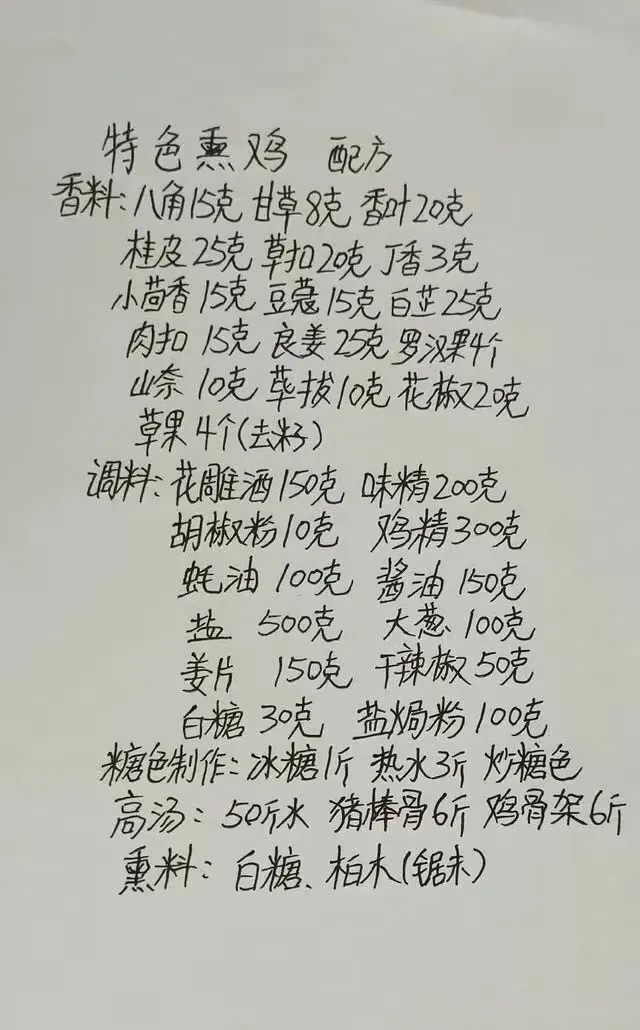 特色熏鸡 配方
香料:八角15克 甘草8克 香叶20克
桂皮25克 草扣20克 丁香3克
小茴香15克 豆蔻15克 白芷25克
肉扣 15克 良姜25克 罗汉果4个
山奈 10克 荜拔10克 花椒20克
草果4个(去籽)
调料:花雕酒150克 味精200克
胡椒粉10克 鸡精300克
蚝油 100克 酱油150克
盐 500克 大葱100克
姜片 150克 干辣椒50克
白糖30克 盐焗粉100克
糖色制作:冰糖1斤 热水3斤 炒糖色
高汤:50斤水 猪棒骨6斤 鸡骨架6斤
熏料:白糖、柏木(锯末)